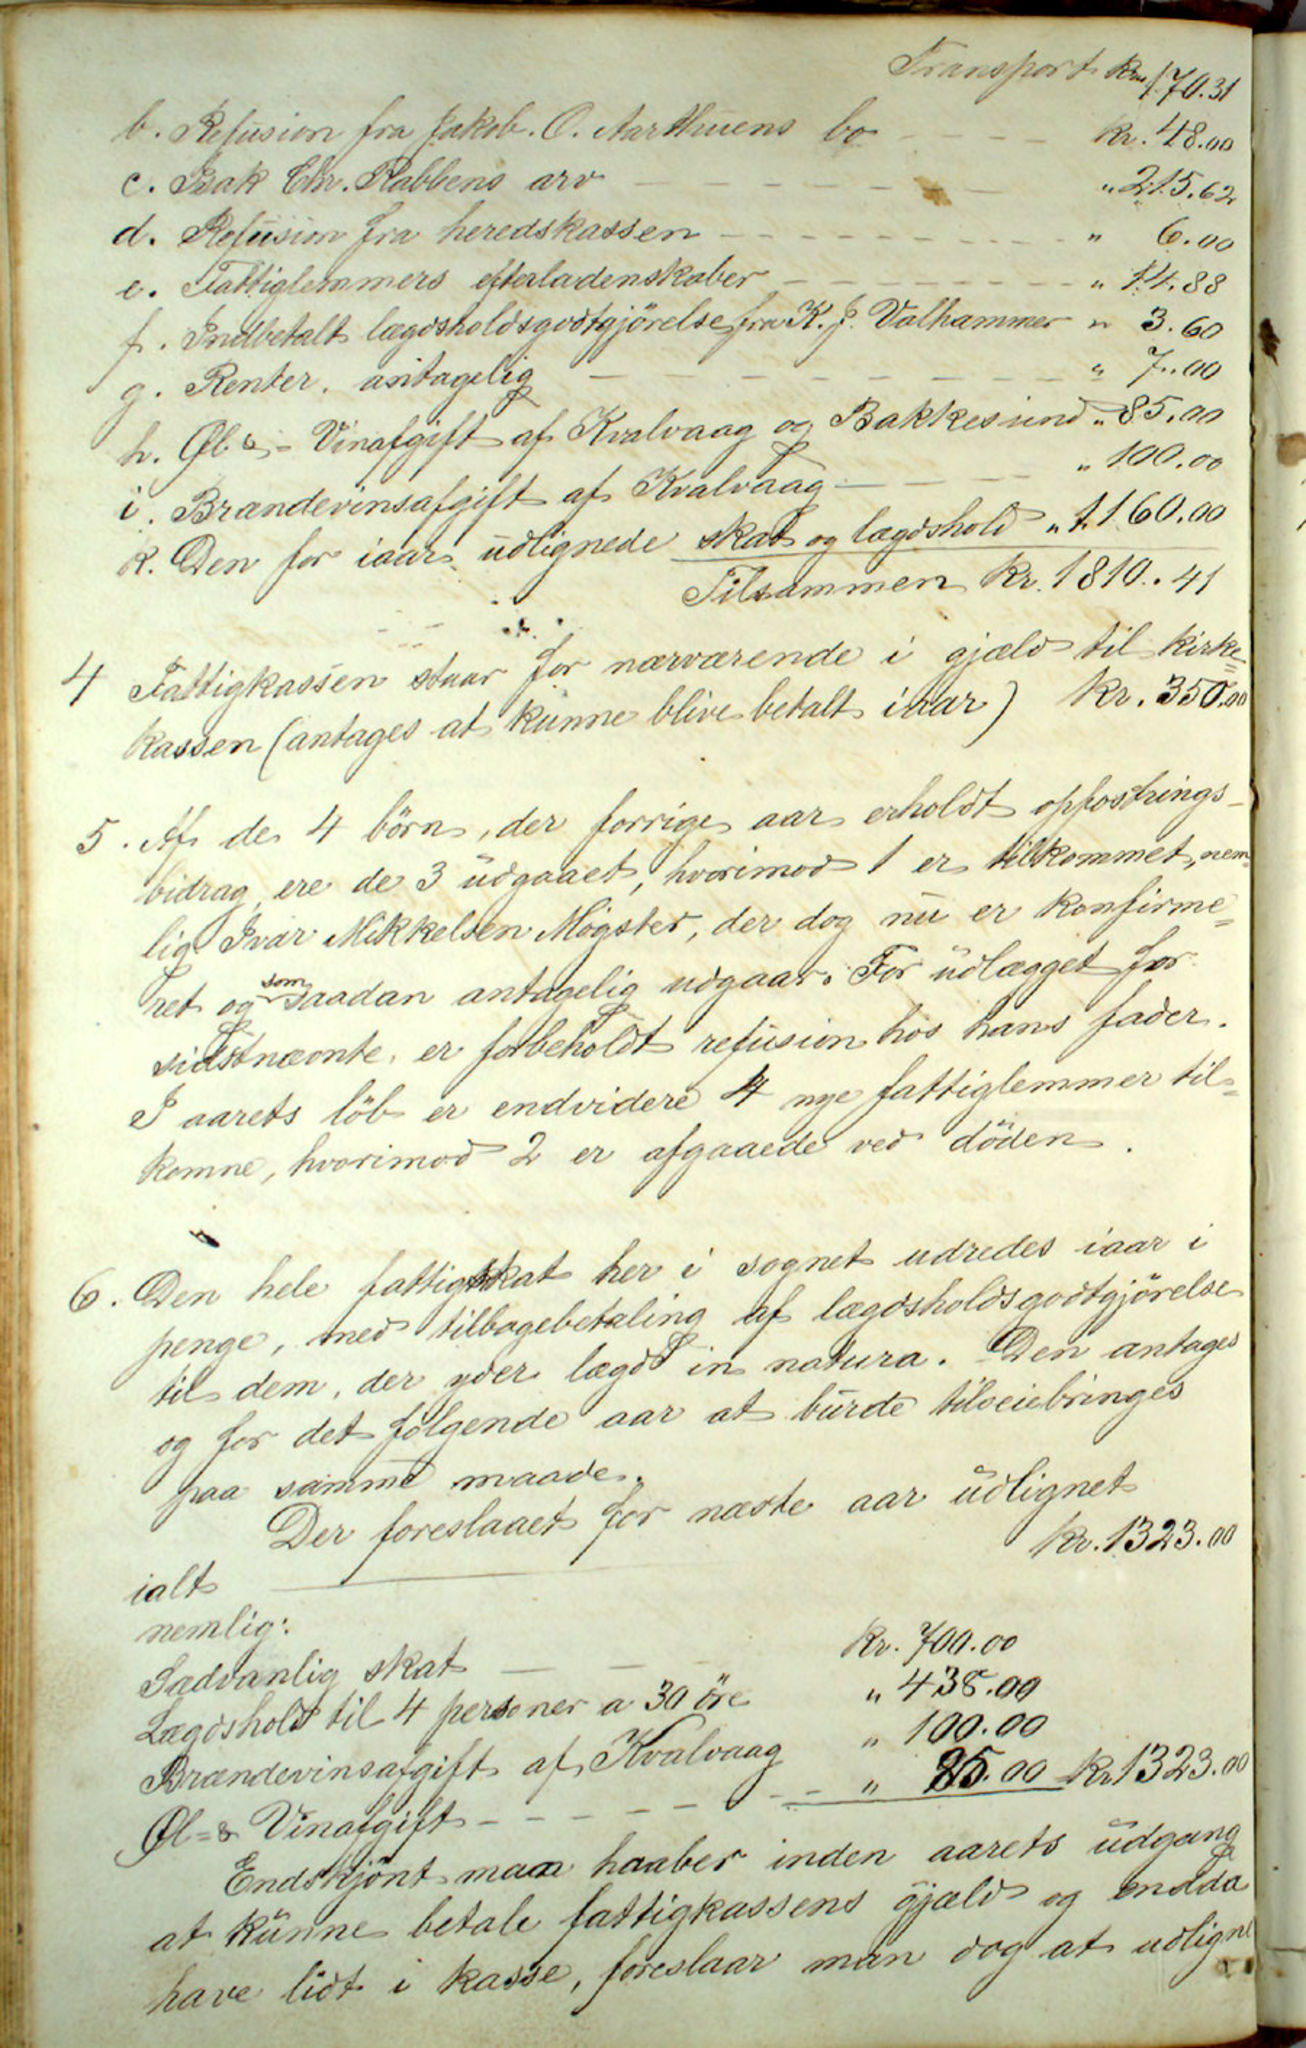 Transport Kr. 170.31
b. Refusion fra Jakob. O. Aarthuens bo — — kr. 48.00
c. Isak Chr. Rabbens arv — — — — — — „ 215.62
d. Refusion fra heredskassen — — — — — — „ 6.00
e. Fattiglemmers efterladenskaber — — — — — „ 14.88
f. Indbetalt lægdsholdsgodtgjörelse fra K. J. Valhammer „ 3.60
g. Renter. antagelig — — — — — — — „ 7.00
h. Øl & - Vinafgift af Kvalvaag og Bakkesund „ 85.00
i. Brændevinsafgift af Kvalvaag — — — — „ 100.00
k. Den for iaar udlignede skat og lægdshold „ 1.160.00
Tilsammen Kr. 1810.41
4 Fattigkassen staar for nærværende i gjæld til kirke=
kassen (antages at kunne blive betalt iaar) Kr. 350.00
5. Af de 4 börn, der forrige aar erholdt opfostrings-
bidrag, ere de 3 udgaaet, hvorimod 1 er tilkommet, nem
lig Ivar Mikkelsen Møgster, der dog nu er konfirme=
ret og som saadan antagelig udgaar. For udlægget for
sidstnævnte, er forbeholdt refusion hos hans fader.
I aarets löb er endvidere 4 nye fattiglemmer til=
komne, hvorimod 2 er afgaaede ved döden.
6. Den hele fattigskat her i sognet udredes iaar i
penge, med tilbagebetaling af lægdsholdsgodtgjörelse
til dem, der yder lægd in natura. Den antages
og for det følgende aar at burde tilveiebringes
paa samme maade.
Der foreslaaet for næste aar udlignet
ialt — kr. 1323.00
nemlig:
Sædvanlig skat — — — Kr. 700.00
Lægdshold til 4 personer a 30 öre „ 438.00
Brændevinsafgift af Kvalvaag „ 100.00
Øl=& Vinafgift - - - - - - - „ 85.00 Kr 1323.00
Endskjönt man haaber inden aarets udgang
at kunne betale fattigkassens gjæld og endda
have lidt i kasse, foreslaar man dog at udligne